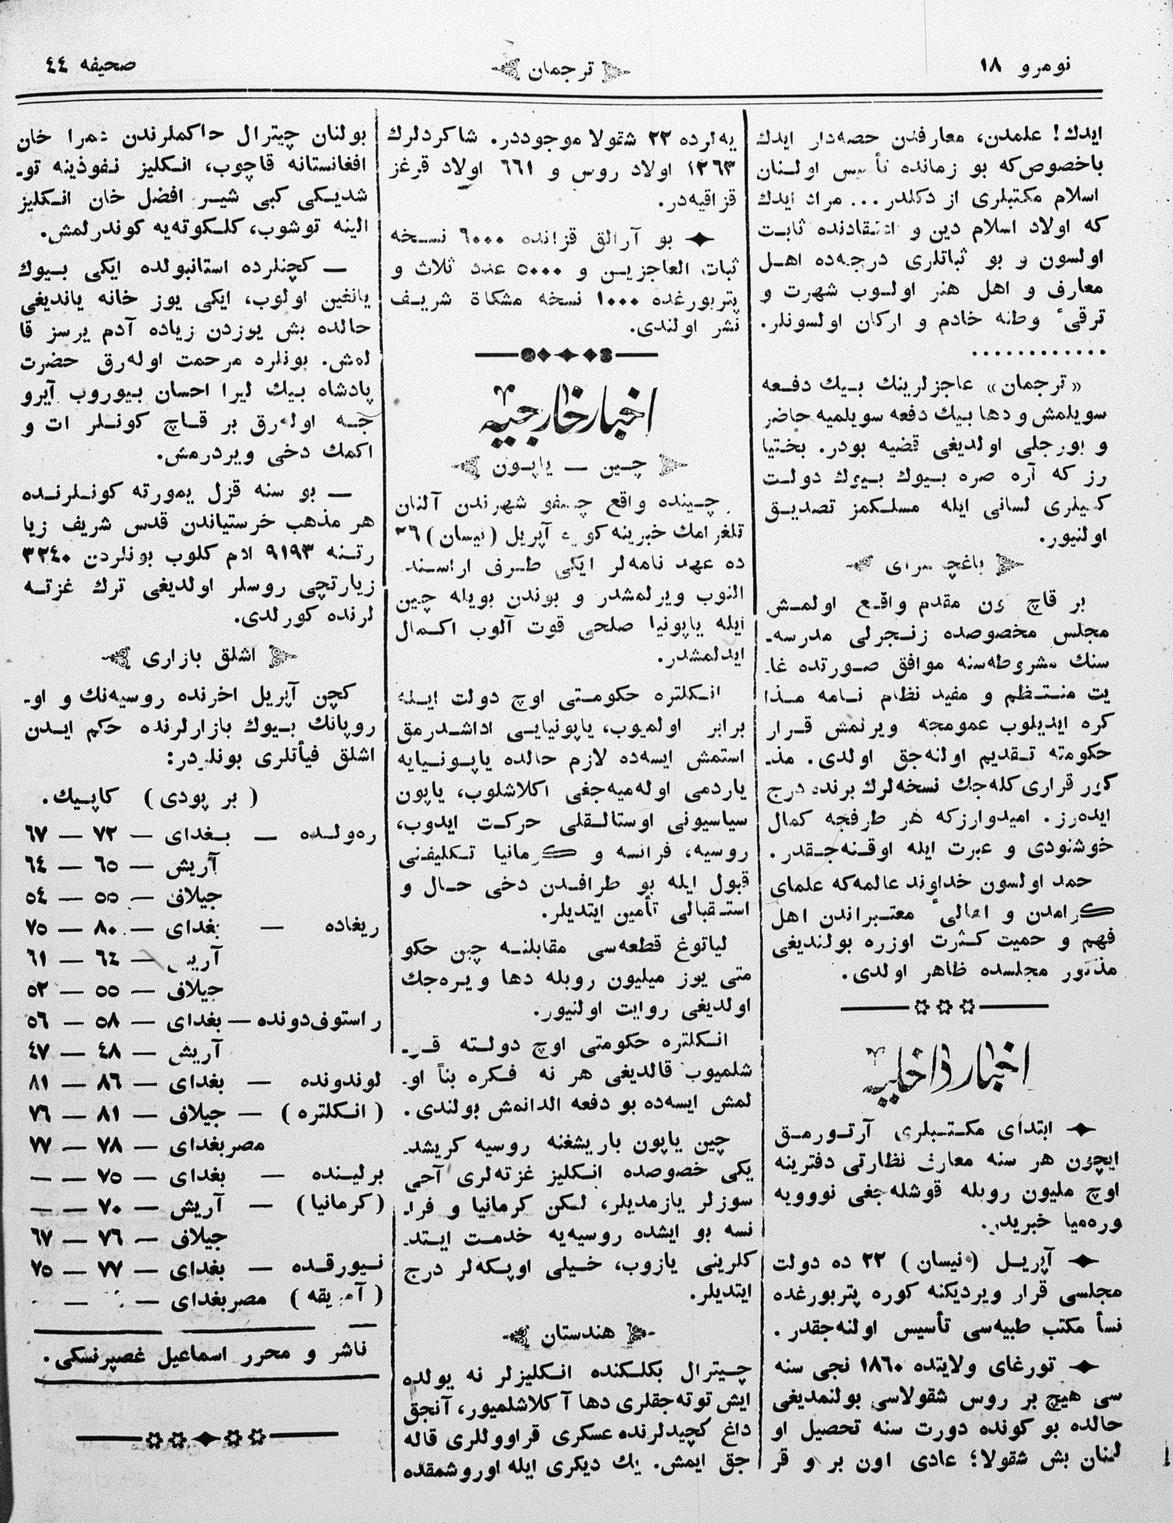 نومرو ١٨
ترجمان
صحيفه ٤٤
ايدك! علمدن، معارفدن حصه‌دار ايدك
باخصوص‌كه بو زمانده تأسيس اولنان
اسلام مكتبلرى از دكلدر... مراد ايدك
كه اولاد اسلام دين و اعتقادنده ثابت
اولسون و بو ثباتلرى درجه‌ده اهل
معارف و اهل هنر اولوب شهرت و
ترقىٔ وطنه خادم و اركان اولسونلر.
............
«ترجمان» عاجزلرينك بيك دفعه
سويلمش و دها بيك دفعه سويلميه حاضر
و بورجلى اولديغى قضيه بودر. بختيا
رز كه آره صره بيوك بيوك دولت
كميلرى لسانى ايله مسلكمز تصديق
اولنيور.
باغچه سراى
بر قاچ كون مقدم واقع اولمش
مجلس مخصوصده زنجرلى مدرسه‌
سنك مشروطه‌سنه موافق صورتده غا
يت منتظم و مفيد نظام نامه مذا
كره ايديلوب عمومجه ويرنمش قرار
حكومته تقديم اولنه‌جق اولدى. مذ
كور قرارى كله‌جك نسخه‌لرك برنده درج
ايده‌رز. اميدوارزكه هر طرفجه كمال
خوشنودى و عبرت ايله اوقنه‌جقدر.
حمد اولسون خداوند عالمه‌كه علماى
كرامدن و اهالىٔ معتبراندن اهل
فهم و حميت كثرت اوزره بولنديغى
مذكور مجلسده ظاهر اولدى.
اخبار داخليه
ابتداى مكتبلرى آرتورمق
ايچون هر سنه معارف نظارتى دفترينه
اوچ مليون روبله قوشله‌جغى نوويه
وره‌ميا خبريدر.
آپريل (نيسان) ٢٢ ده دولت
مجلسى قرار ويرديكنه كوره پتربورغده
نسأ مكتب طبيه‌سى تأسيس اولنه‌جقدر.
تورغاى ولايتده ١٨٦٠ نجى سنه
سى هيچ بر روس شقولاسى بولنمديغى
حالده بو كونده دورت سنه تحصيل او
لنان بش شقولا؛ عادى اون بر و قر
يه‌لرده ٢٢ شقولا موجوددر. شاكردلرك
١٢٦٣ اولاد روس و ٦٦١ اولاد قرغز
قزاقيه‌در.
بو آرالق قزانده ٦٠٠٠ نسخه
ثبات العاجزين و ٥٠٠٠ عدد ثلاث و
پتربورغده ١٠٠٠ نسخه مشكاة شريف
نشر اولندى.
اخبار خارجيه
چين — ياپون
چينده واقع چيفو شهرندن آلنان
تلغرامك خبرينه كوره آپريل (نيسان) ٢٦
ده عهد نامه‌لر ايكى طرف اراسنده
النوب ويرلمشدر و بوندن بويله چين
ايله ياپونيا صلحى قوت آلوب اكمال
ايدلمشدر.
انكلتره حكومتى اوچ دولت ايله
برابر اولميوب، ياپونيايى اداشدرمق
استمش ايسه‌ده لازم حالده ياپونيايه
ياردمى اوله‌ميه‌جغى اكلاشلوب، ياپون
سياسيونى اوستالقلى حركت ايدوب،
روسيه، فرانسه و كرمانيا تكليفنى
قبول ايله بو طرافدن دخى حال و
استقبالى تأمين ايتديلر.
لياتوغ قطعه‌سى مقابلنه چين حكو
متى يوز ميليون روبله دها ويره‌جك
اولديغى روايت اولنيور.
انكلتره حكومتى اوچ دولته قر
شلميوب قالديغى هر نه فكره بنأ او
لمش ايسه‌ده بو دفعه الدانمش بولندى.
چين ياپون باريشغنه روسيه كريشد
يكى خصوصده انكليز غزته‌لرى آجى
سوزلر يازمديلر، لكن كرمانيا و فرا
نسه بو ايشده روسيه‌يه خدمت ايتد
كلرينى يازوب، خيلى اوپكه‌لر درج
ايتديلر.
هندستان
چيترال بكلكنده انكليزلر نه يولده
ايش توته‌جقلرى دها آكلاشلميور، آنجق
داغ كچيدلرنده عسكرى قراووللرى قاله
جق ايمش. يك ديكرى ايله اوروشمقده
بولنان چيترال حاكملرندن عمرا خان
افغانستانه قاچوب، انكليز نفوذينه تو
شديكى كبى شير افضل خان انكليز
الينه توشوب، كلكوته‌يه كوندرلمش.
— كچنلرده استانبولده ايكى بيوك
يانغين اولوب، ايكى يوز خانه يانديغى
حالده بش يوزدن زياده آدم يرسز قا
لمش. بونلره مرحمت اوله‌رق حضرت
پادشاه بيك ليرا احسان بيوروب آيرو
جه اوله‌رق بر قاچ كونلر ات و
اكمك دخى ويردرمش.
— بو سنه قزل يمورته كونلرنده
هر مذهب خرستياندن قدس شريف زيا
رتنه ٩١٩٣ ادم كلوب بونلردن ٣٢٤٠
زيارتچى روسلر اولديغى ترك غزته
لرنده كورلدى.
اشلق بازارى
كچن آپريل اخرنده روسيه‌نك و او
روپانك بيوك بازارلرنده حكم ايدن
اشلق فيأتلرى بونلردر:
(بر پودى) كاپيك.
ره‌ولده — بغداى — ٧٢ — ٦٧
آريش — ٦٥ — ٦٤
جيلاف — ٥٥ — ٥٤
ريغاده — بغداى — ٨٠ — ٧٥
آريش — ٦٤ — ٦١
جيلاف — ٥٥ — ٥٢
راستوف‌دونده — بغداى — ٥٨ — ٥٦
آريش — ٤٨ — ٤٧
لوندونده — بغداى — ٨٦ — ٨١
(انكلتره) — جيلاف — ٨١ — ٧٦
مصربغداى — ٧٨ — ٧٧
برلينده — بغداى — ٧٥ — —
(كرمانيا) — آريش — ٧٠ — —
جيلاف — ٧٦ — ٦٧
نيورقده — بغداى — ٧٧ — ٧٥
(آمريقه) مصربغداى —
ناشر و محرر اسماعيل غصپرنسكى.